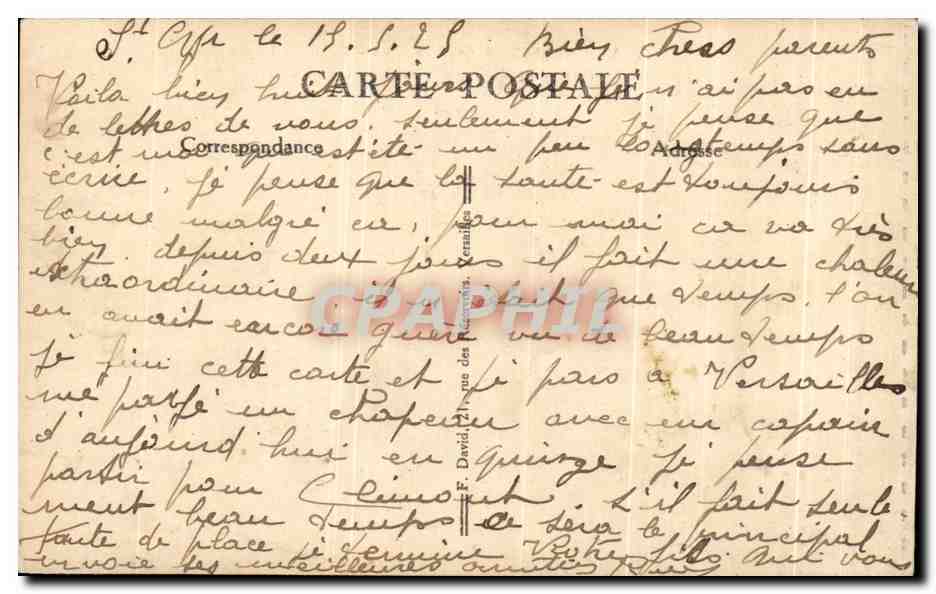 St Cyr le 15.5.25 Bien Chers parents
CARTE POSTALE
Voila bien huit jours que je n'ai pas eu
de lettres de vous. seulement je pense que
Correspondance
Adresse
c'est moi qui est été un peu longtemps sans
écrire, je pense que la santé est toujours
bonne malgré ca, pour moi ca va très
bien. depuis deux jours il fait une chaleur
extraordinaire, il n'était que temps, l'on
en avait encore guère vu de beau temps
je fini cette carte et je pars à Versailles
me payé un chapeau avec un copain
d'aujourd'hui en quinze je pense
partir pour Clémont s'il fait seule-
ment beau temps ce sera le principal
Faute de place je termine Votre fils qui vous
envoie ses meilleures amitiés
F. David, 21, rue des Réservoirs. Versailles
CPAPHIL